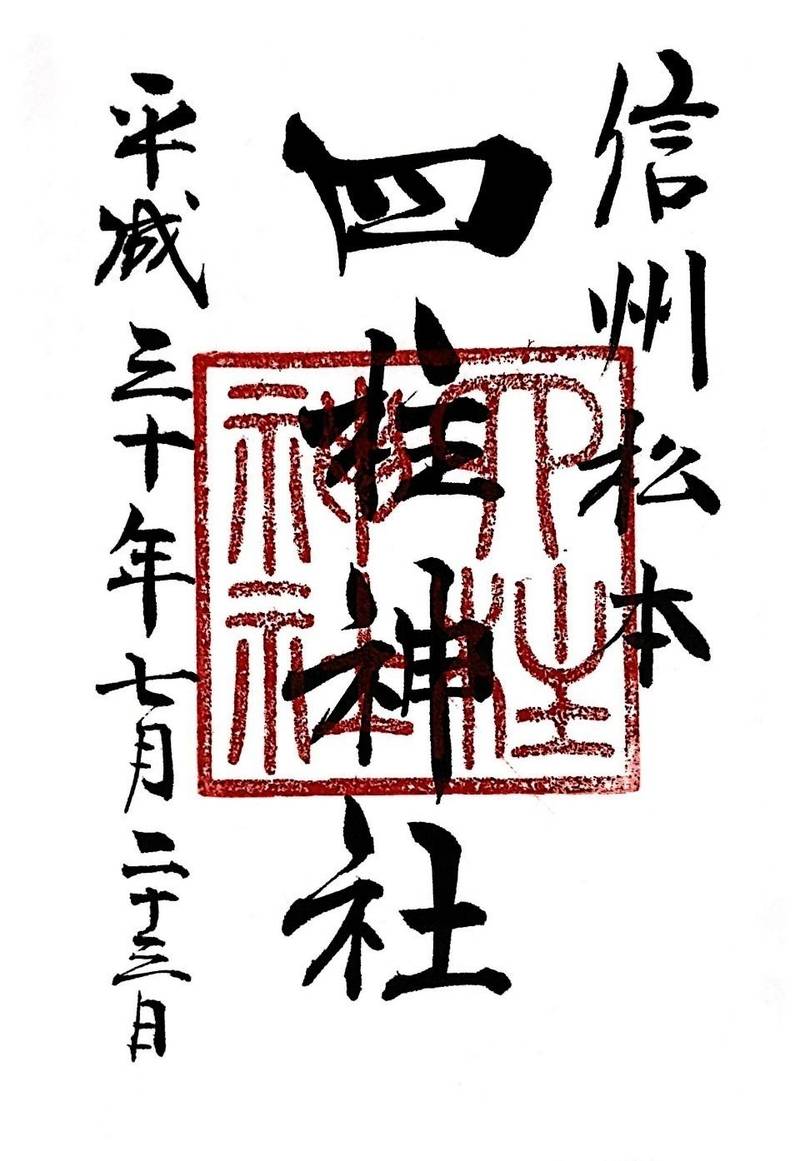 信州松本
四柱神社
四柱神社
平成三十年七月二十三日